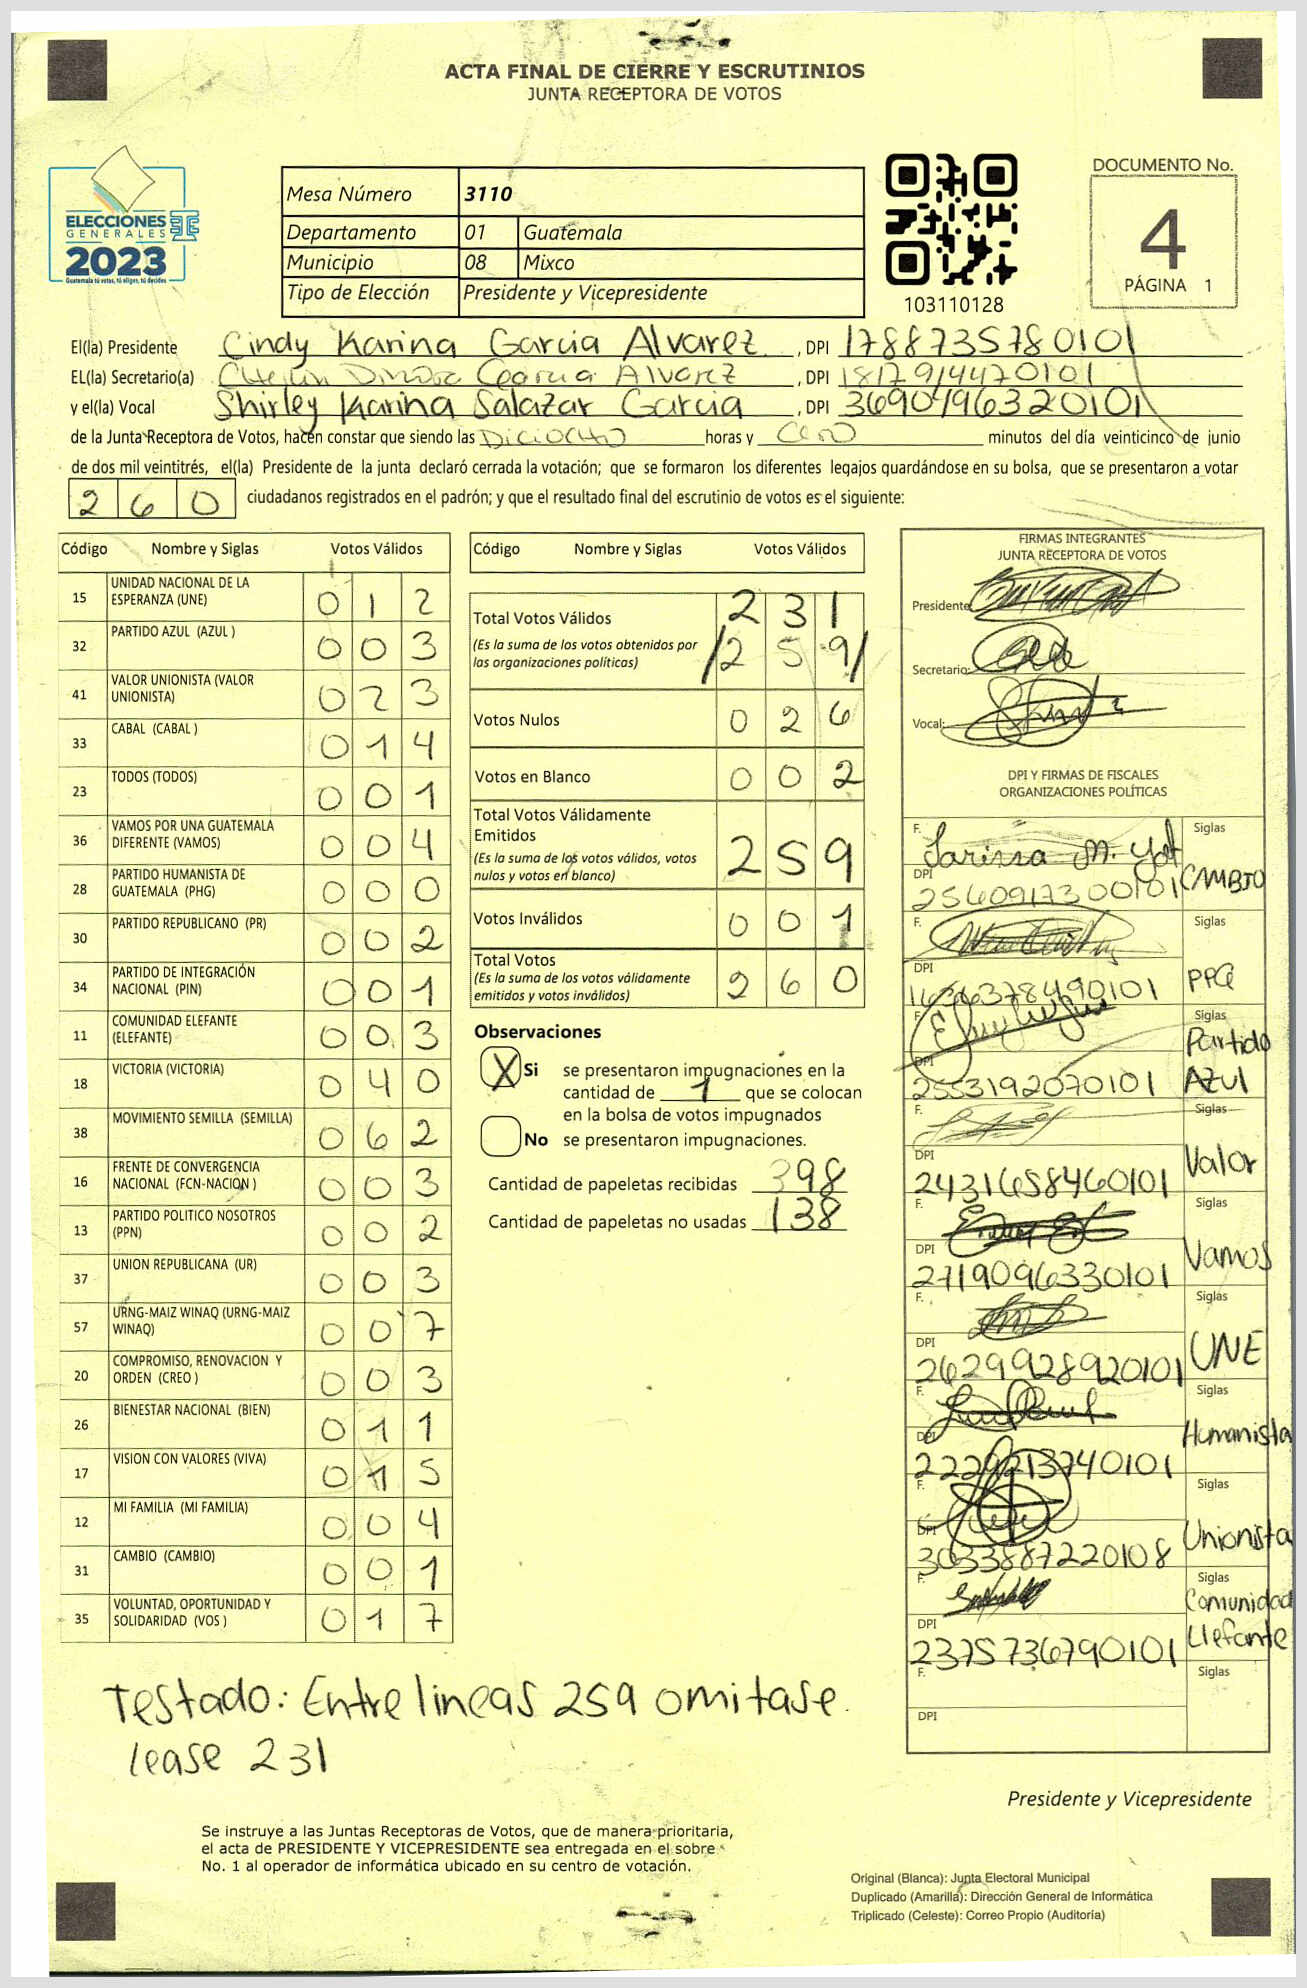 ACTA FINAL DE CIERRE Y ESCRUTINIOS
JUNTA RECEPTORA DE VOTOS
ELECCIONES
GENERALES
2023
Guatemala tú votas, tú eliges, tú decides
Mesa Número 3110
Departamento 01 Guatemala
Municipio 08 Mixco
Tipo de Elección Presidente y Vicepresidente
103110128
DOCUMENTO No.
4
PÁGINA 1
El(la) Presidente Cindy Karina Garcia Alvarez, DPI 1788735780101
EL(la) Secretario(a) Garcia Alvarez, DPI 1817914470101
y el(la) Vocal Shirley Karina Salazar Garcia, DPI 3690496320101
de la Junta Receptora de Votos, hacen constar que siendo las Diciocho horas y Cero minutos del día veinticinco de junio
de dos mil veintitrés, el(la) Presidente de la junta declaró cerrada la votación; que se formaron los diferentes legajos guardándose en su bolsa, que se presentaron a votar
260 ciudadanos registrados en el padrón; y que el resultado final del escrutinio de votos es el siguiente:
Código Nombre y Siglas Votos Válidos
15 UNIDAD NACIONAL DE LA ESPERANZA (UNE) 0 1 2
32 PARTIDO AZUL (AZUL ) 0 0 3
41 VALOR UNIONISTA (VALOR UNIONISTA) 0 2 3
33 CABAL (CABAL ) 0 1 4
23 TODOS (TODOS) 0 0 1
36 VAMOS POR UNA GUATEMALA DIFERENTE (VAMOS) 0 0 4
28 PARTIDO HUMANISTA DE GUATEMALA (PHG) 0 0 0
30 PARTIDO REPUBLICANO (PR) 0 0 2
34 PARTIDO DE INTEGRACIÓN NACIONAL (PIN) 0 0 1
11 COMUNIDAD ELEFANTE (ELEFANTE) 0 0 3
18 VICTORIA (VICTORIA) 0 4 0
38 MOVIMIENTO SEMILLA (SEMILLA) 0 6 2
16 FRENTE DE CONVERGENCIA NACIONAL (FCN-NACION ) 0 0 3
13 PARTIDO POLITICO NOSOTROS (PPN) 0 0 2
37 UNION REPUBLICANA (UR) 0 0 3
57 URNG-MAIZ WINAQ (URNG-MAIZ WINAQ) 0 0 7
20 COMPROMISO, RENOVACION Y ORDEN (CREO ) 0 0 3
26 BIENESTAR NACIONAL (BIEN) 0 1 1
17 VISION CON VALORES (VIVA) 0 1 5
12 MI FAMILIA (MI FAMILIA) 0 0 4
31 CAMBIO (CAMBIO) 0 0 1
35 VOLUNTAD, OPORTUNIDAD Y SOLIDARIDAD (VOS ) 0 1 7
Código Nombre y Siglas Votos Válidos
Total Votos Válidos 2 3 1
(Es la suma de los votos obtenidos por las organizaciones políticas) /2 5 9/
Votos Nulos 0 2 6
Votos en Blanco 0 0 2
Total Votos Válidamente Emitidos
(Es la suma de los votos válidos, votos nulos y votos en blanco) 2 5 9
Votos Inválidos 0 0 1
Total Votos
(Es la suma de los votos válidamente emitidos y votos inválidos) 2 6 0
Observaciones
X Si se presentaron impugnaciones en la
cantidad de 1 que se colocan
en la bolsa de votos impugnados
No se presentaron impugnaciones.
Cantidad de papeletas recibidas 398
Cantidad de papeletas no usadas 138
FIRMAS INTEGRANTES
JUNTA RECEPTORA DE VOTOS
Presidente:
Secretario:
Vocal:
DPI Y FIRMAS DE FISCALES
ORGANIZACIONES POLÍTICAS
F. Larissa M. Siglas
DPI 2560917300101 CAMBIO
F. Siglas
DPI 1636378490101
F. Siglas Partido
DPI 2553192070101 Azul
F. Siglas
DPI 2431658460101 Valor
F. Siglas
DPI 2719096330101 Vamos
F. Siglas
DPI 2629928920101 UNE
F. Siglas
DPI 2229213740101 Humanista
F. Siglas
DPI 3033887220108 Unionista
F. Siglas Comunidad
DPI 2375736790101 Llefante
F. Siglas
DPI
Testado: Entre lineas 259 omitase.
lease 231
Presidente y Vicepresidente
Se instruye a las Juntas Receptoras de Votos, que de manera prioritaria,
el acta de PRESIDENTE Y VICEPRESIDENTE sea entregada en el sobre
No. 1 al operador de informática ubicado en su centro de votación.
Original (Blanca): Junta Electoral Municipal
Duplicado (Amarilla): Dirección General de Informática
Triplicado (Celeste): Correo Propio (Auditoría)